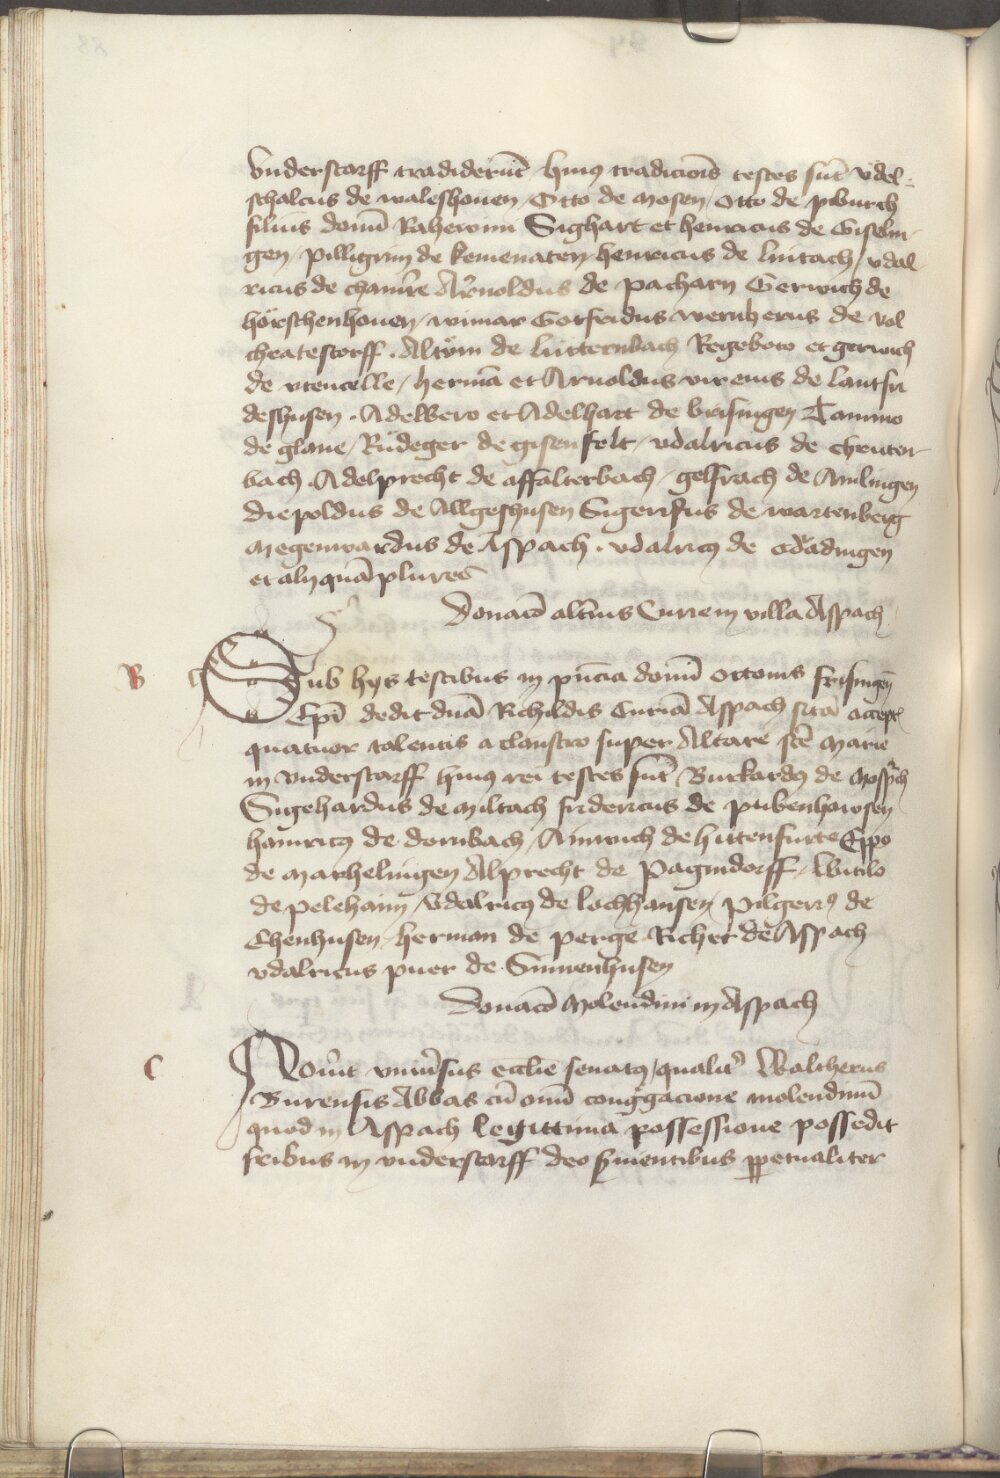 Vnderstorff tradiderūt huius tradicionis testes sūt Vdel-
schalcus de waleshouen / Otto de Mosen / Otto de pburch
filius domī Raherinn Sighart et henricus de Giselin-
gen / pilligrim de kemenaten henricus de lintach / vdal-
ricus de chamre Arnoldus de pacharn Gerwich de
hörschenhouen / wimar Gotfridus wernherus de vol
cheatestorff . Altum de lutternbach Regeboto et gerwich
de vtencelle / hermā et Arnoldus vir eius de lantfri
deshusen . Adelbero et Adelhart de brisingen Tammo
de glane / Rudeger de gisenfelt / vdalricus de cheuter-
bach . Adelprecht de affalterbach / gelfrach de Amlingen
Diepoldus de Allgeshusen Sigerifus de wartenberg
Megenwardus de Aspach . vdalricꝫ de odadingen
et alij quā plures
Donacō alterius Curie in villa Aspach
B Sub hijs testibus in pn̄cia domī ottonis frisingeñ
Epī dedit dn̄a Richildis Curiā Aspach sitā accept
quatuor talentis a claustro super Altare scē Marie
in vnderstorff huius rei testes sūt Burkardꝫ de Mosp̄ch
Sigehardus de Miltach fridericus de pubenhawsen
hainricꝫ de dornbach / Ainwich de hittenfurte Eppo
de Machelingen Alprecht de Pagindorff / Witilo
de pelehaim / Vdalricꝫ de lochhausen / Pilgerꝫ de
Chenhusen / herman de perge Richer de Aspach
vdalricus puer de Sunnenhusen
Donacō Molendini in Aspach
C Nouīt vniūsus ecclīe senatꝫ / qualitꝰ Waltherus
Burensis Abbas cū omī congregacione molendinū
quod in Aspach legittima possessione possedit
fr̄ibus in vnderstorff deo suientibus ꝑpetualiter